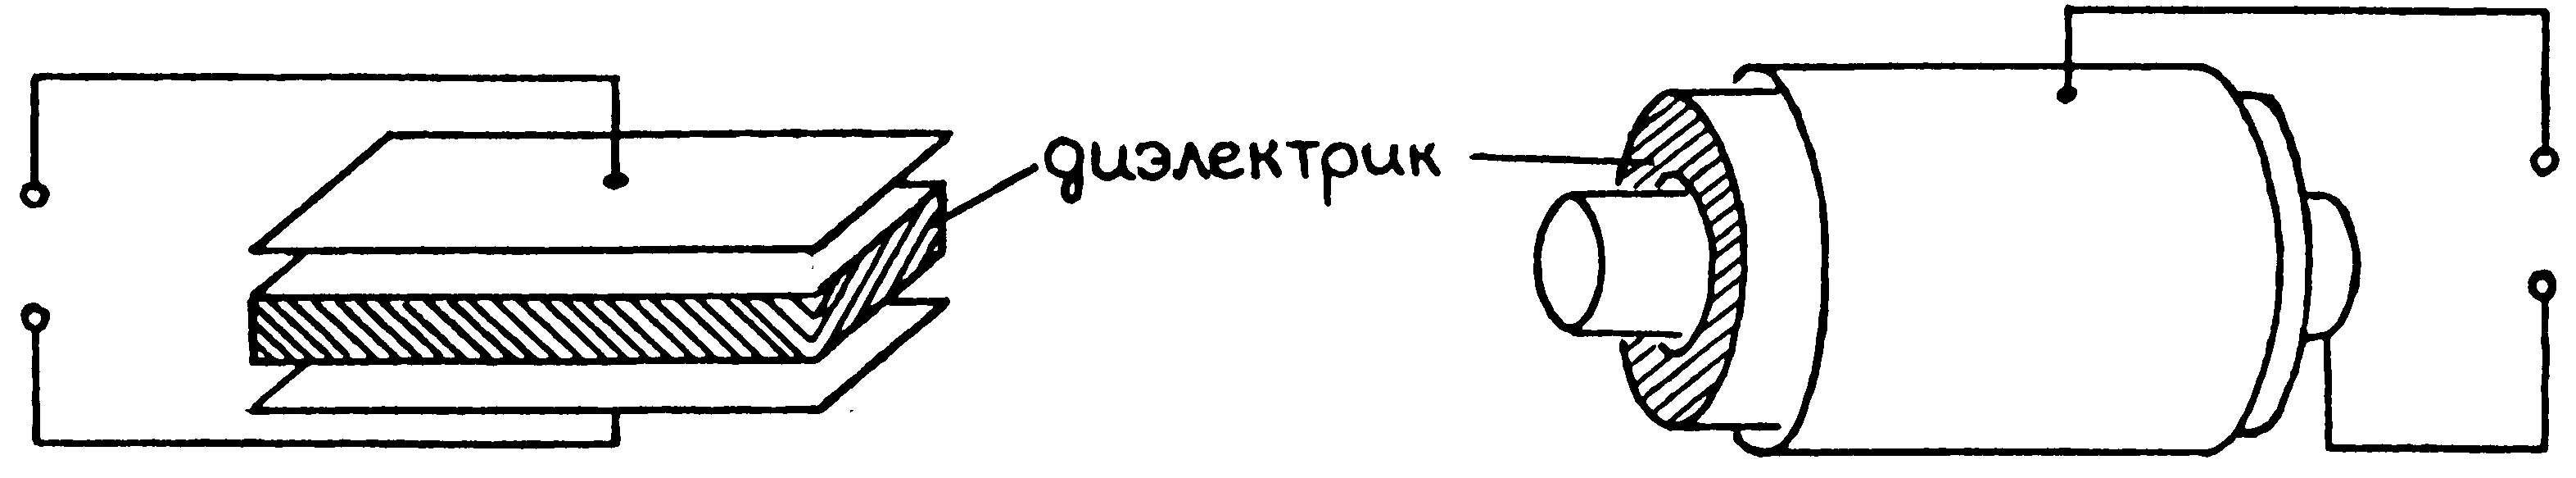 диэлектрик